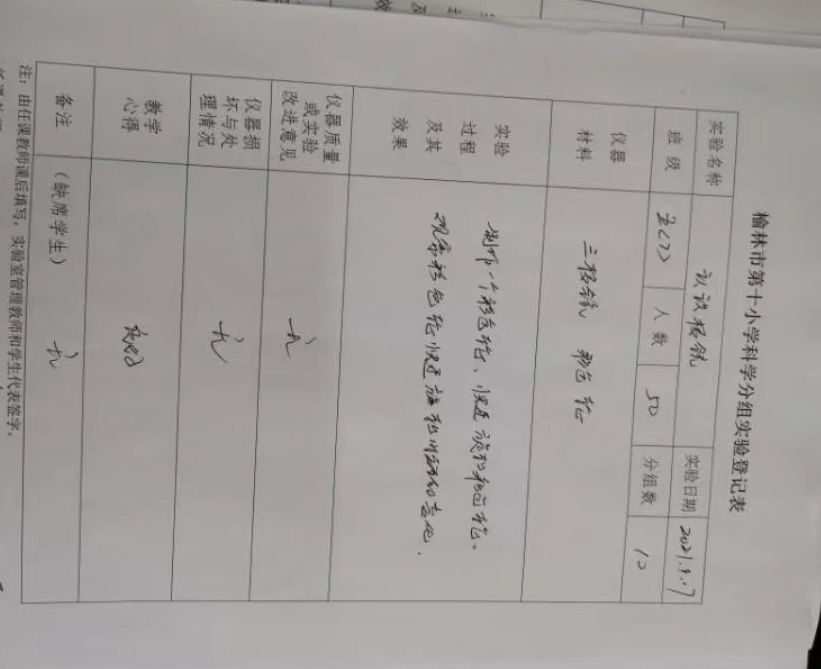 榆林市第十小学科学分组实验登记表
实验名称 认识棱镜 实验日期 2021.9.17
班级 五(7) 人数 50 分组数 12
仪器
材料
三棱镜 彩色轮
实验
过程
及其
效果
制作一个彩色轮、快速旋转彩色轮。
观察彩色轮快速旋转时
仪器质量
或实验
改进意见
无
仪器损
坏与处
理情况
无
教学
心得
良好
备注
（缺席学生） 无
注：由任课教师课后填写，实验室管理教师和学生代表签字。